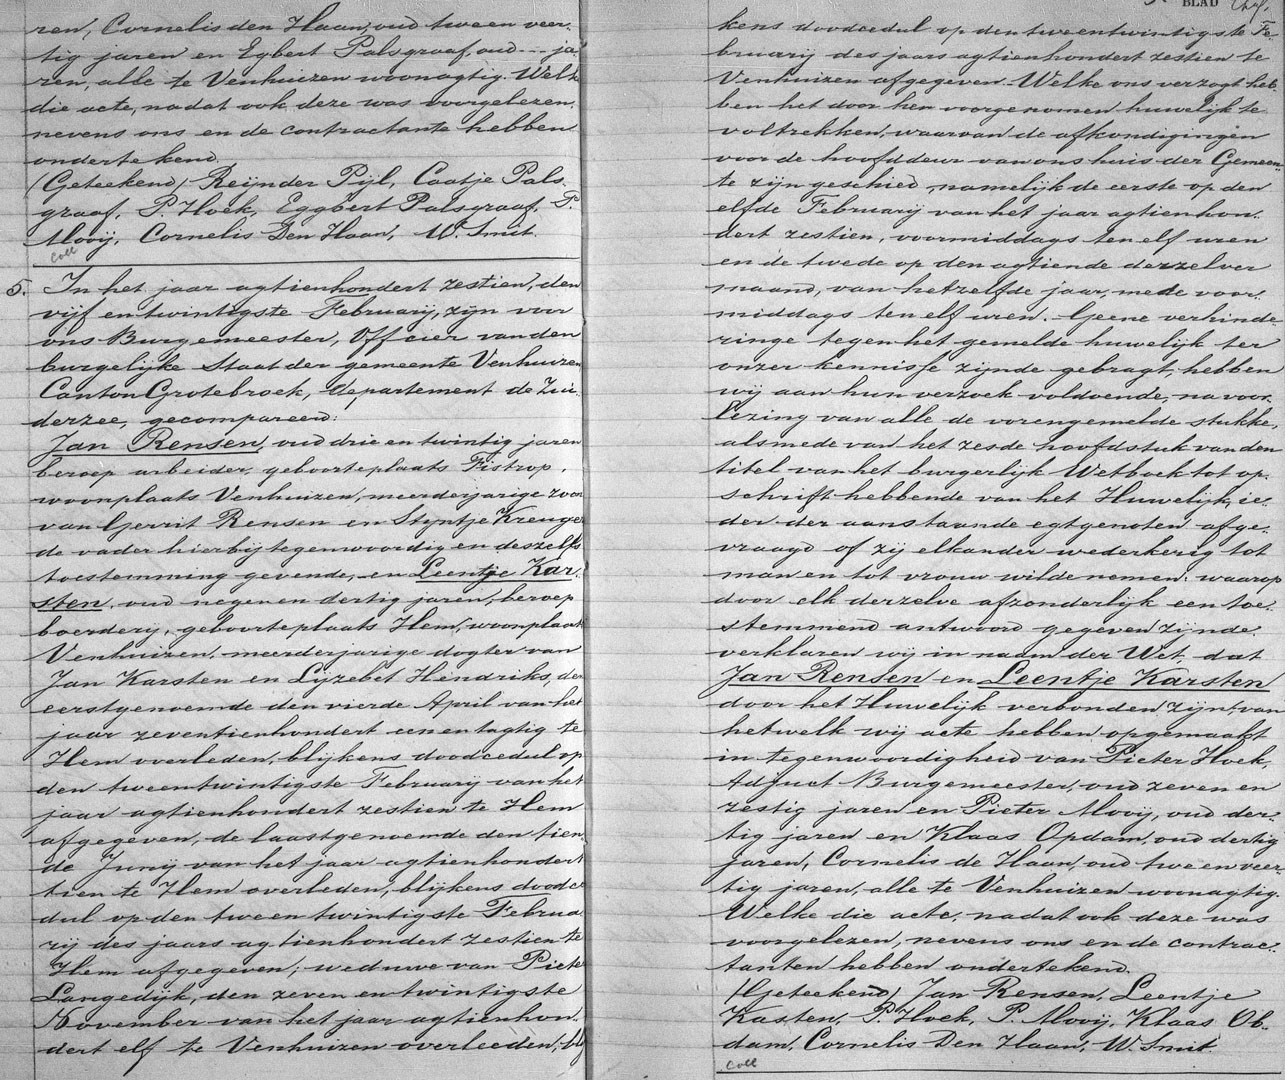 ren, Cornelis den Haan, oud twee en veer-
tig jaren en Egbert Palsgraaf, oud --- ja-
ren, alle te Venhuizen woonagtig. Welke
die acte, nadat ook deze was voorgelezen,
nevens ons en de contractante hebben
ondertekend.
(Geteekend) Reijnder Pijl, Caatje Pals
graaf, P. Hoek, Eggbert Palsgraaf, P.
Mooij, Cornelis Den Haan, W. Smit.
Coll
5. In het jaar agtienhondert zestien, den
vijf en twintigste Februarij, zijn voor
ons Burgemeester, Officier van den
burgelijke Staat der gemeente Venhuizen
Canton Grotebroek, departement de Zui-
derzee, gecompareerd:
Jan Rensen, oud drie en twintig jaren
beroep arbeider, geboorteplaats Fistrop,
woonplaats Venhuizen, meerderjarige zoon
van Gerrit Rensen en Styntje Kreuge
de vader hierbij tegenwoordig en deszelfs
toestemming gevende, en Leentje Kar-
sten, oud negen en dertig jaren, beroep
boerderij, geboorteplaats Hem, woonplaats
Venhuizen, meerderjarige dogter van
Jan Karsten en Lijzebet Hendriks, de
eerstgenoemde den vierde April van het
jaar zeventienhondert een en tagtig te
Hem overleden, blijkens doodcedul op
den twee en twintigste Februarij van het
jaar agtienhondert zestien te Hem
afgegeven, de laastgenoemde den tien-
de Junij van het jaar agtienhondert
tien te Hem overleden, blijkens doodce
dul op den twee en twintigste Februa
rij des jaars agtienhondert zestien te
Hem afgegeven; weduwe van Pieter
Langedijk, den zeven en twintigste
November van het jaar agtienhon-
dert elf te Venhuizen overleeden, bly
BLAD
kens doodcedul op den twee en twintigste Fe-
bruarij des jaars agtienhondert zestien te
Venhuizen afgegeven. Welke ons verzogt heb-
ben het door hen voorgenomen huwelijk te
voltrekken, waarvan de afkondigingen
voor de hoofddeur van ons huis der Gemeen-
te zijn geschied, namelijk de eerste op den
elfde Februarij van het jaar agtienhon-
dert zestien, voormiddags ten elf uren
en de twede op den agtiende derzelver
maand, van hetzelfde jaar, mede voor-
middags ten elf uren. Geene verhinde
ringe tegen het gemelde huwelijk ter
onzer kennisse zijnde gebragt, hebben
wij aan hun verzoek voldoende, na voor-
lezing van alle de vorengemelde stukke,
alsmede van het zesde hoofdstuk van den
titel van het burgerlijk Wetboek tot op-
schrift hebbende van het Huwelijk, ie-
der der aanstaande egtgenoten afge-
vraagd of zij elkander wederkerig tot
man en tot vrouw wilde nemen: waarop
door elk derzelve afzonderlijk een toe-
stemmend antwoord gegeven zijnde,
verklaren wij in naam der Wet dat
Jan Rensen en Leentje Karsten
door het Huwelijk verbonden zijn, van
hetwelk wij acte hebben opgemaakt
in tegenwoordigheid van Pieter Hoek,
Adjuct Burgemeester, oud zeven en
zestig jaren en Pieter Mooij, oud der-
tig jaren en Klaas Opdam, oud dertig
jaren, Cornelis de Haan, oud twe en veer-
tig jaren, alle te Venhuizen woonagtig.
Welke die acte, nadat ook deze was
voorgelezen, nevens ons en de contrac-
tanten hebben ondertekend.
(Geteekend) Jan Rensen, Leentje
Kasten, P. Hoek, P. Mooij, Klaas Ob-
dam, Cornelis Den Haan, W. Smit.
Coll